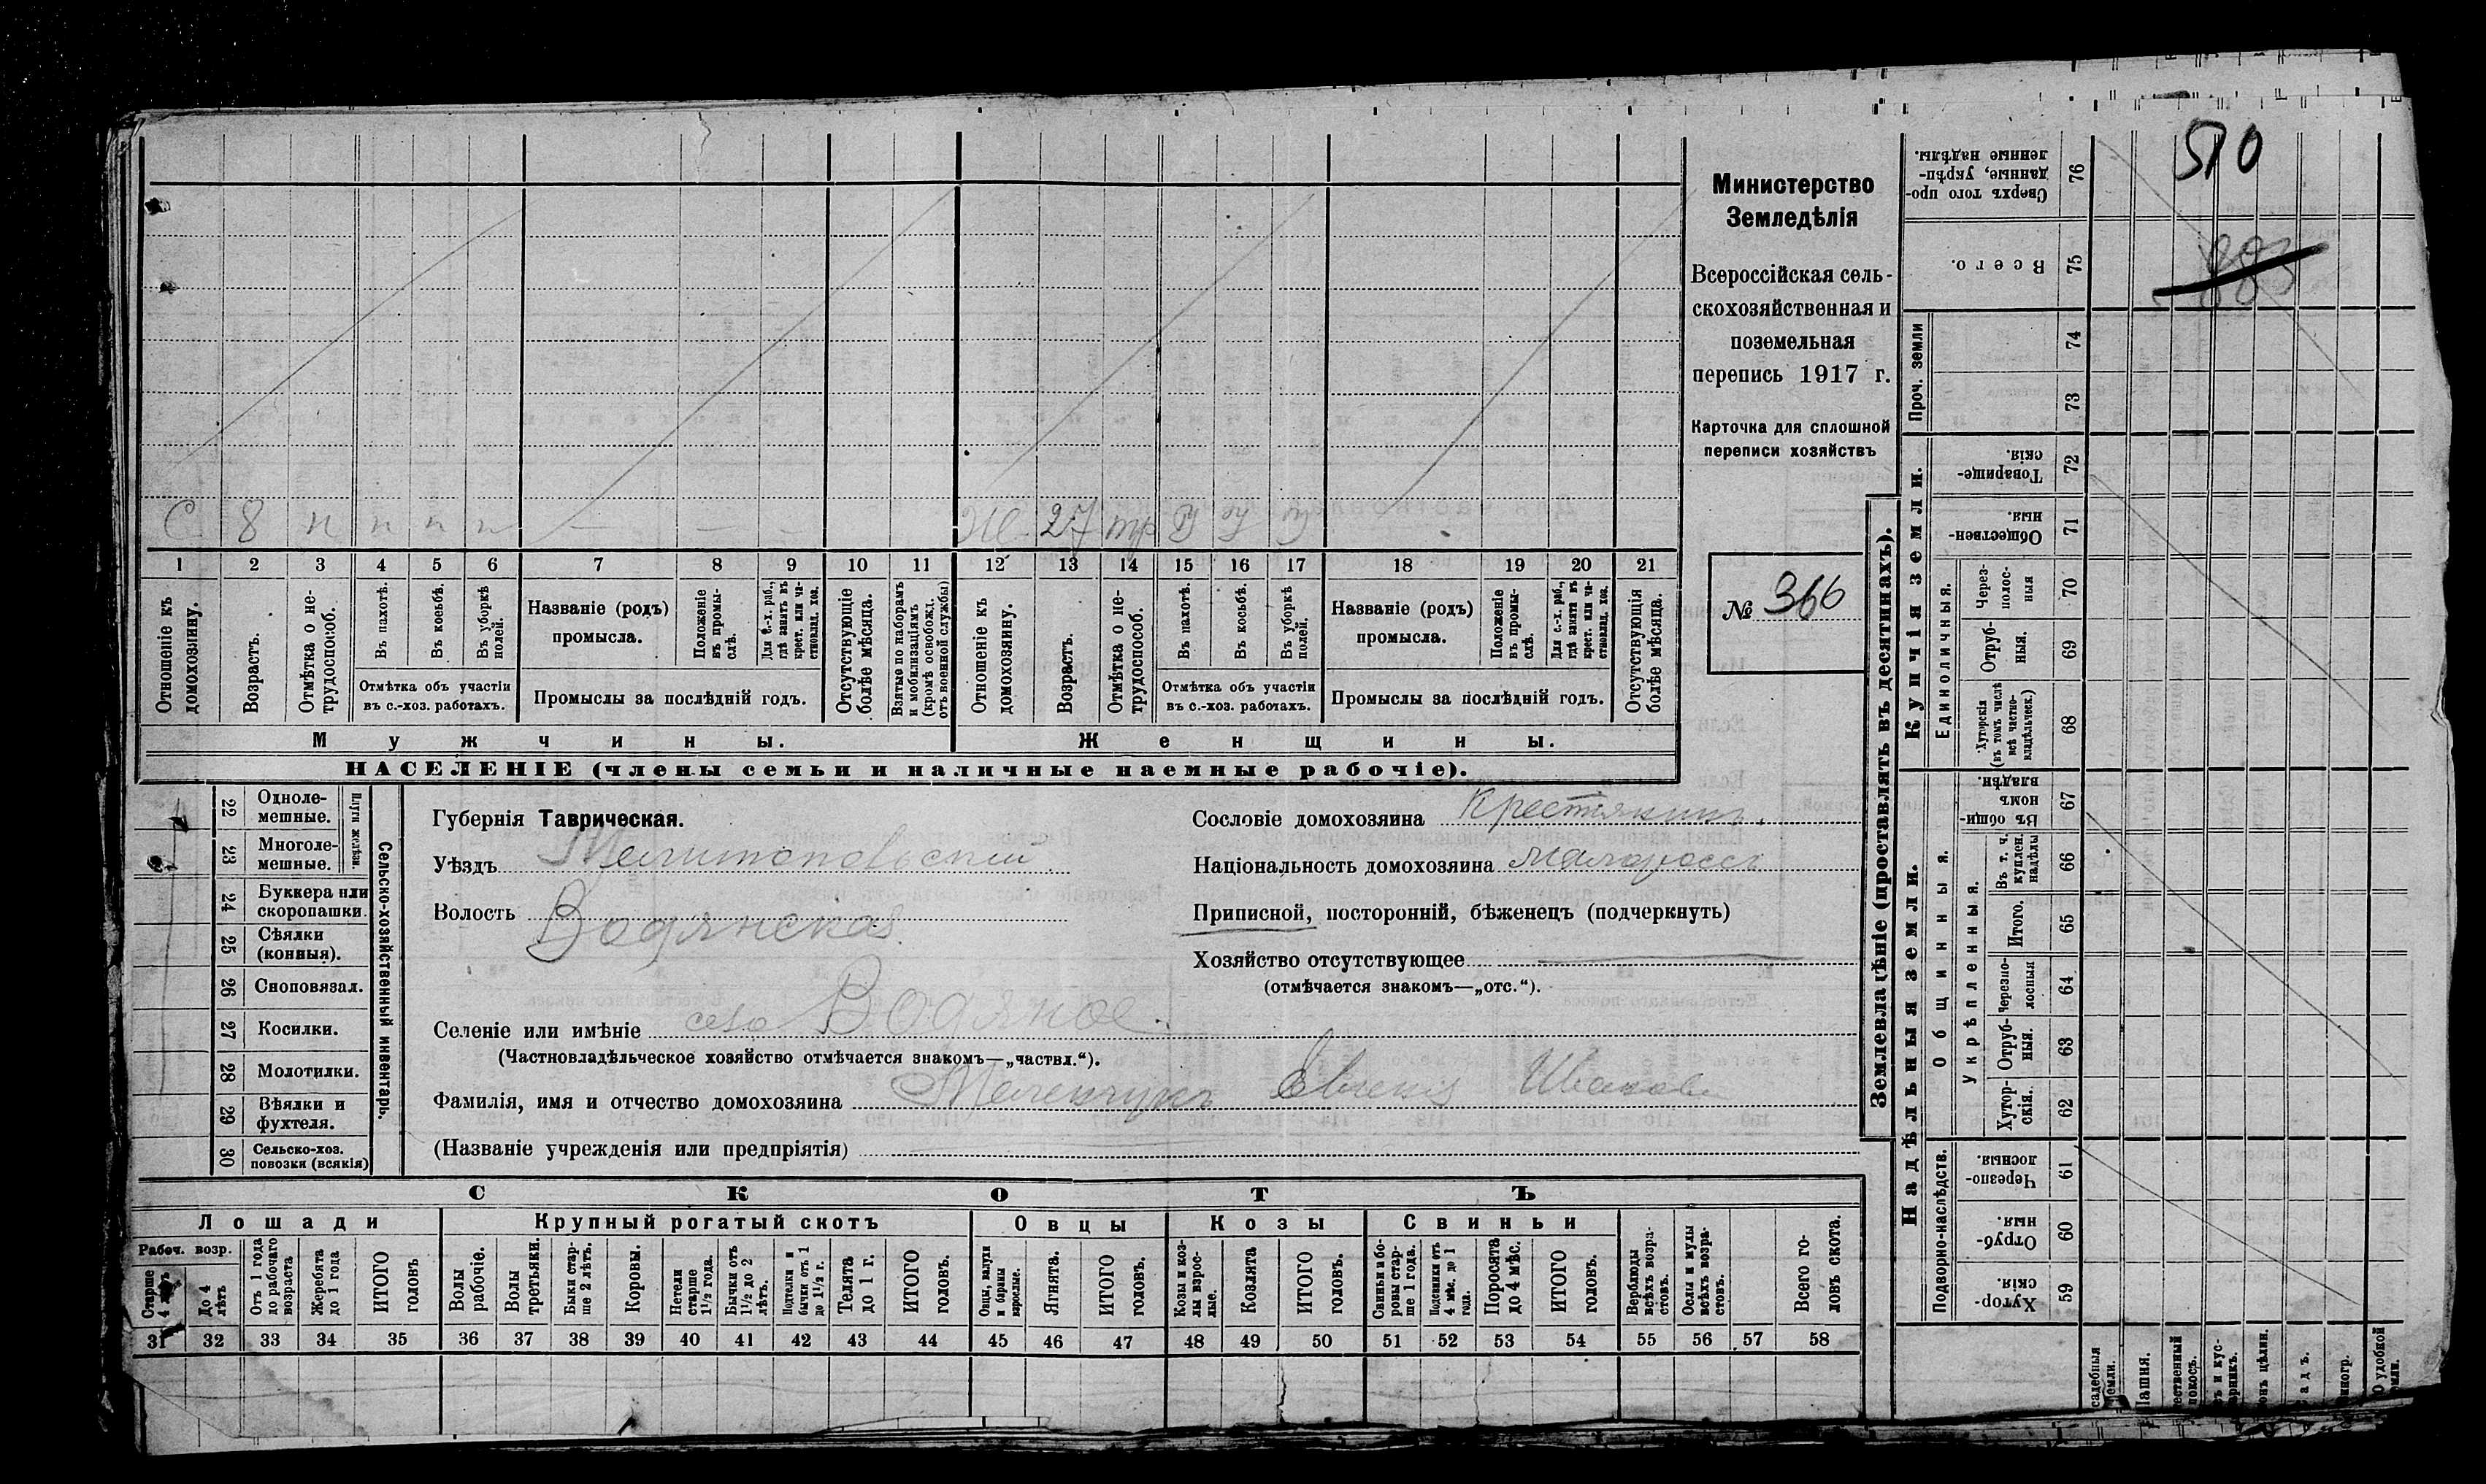 510
883
Министерство
Земледѣлія
Всероссійская сель-
скохозяйственная и
поземельная
перепись 1917 г.
Карточка для сплошной
переписи хозяйствъ
№ 366
С 8 н н н н — — — Ж 27 тр
1 2 3 4 5 6 7 8 9 10 11 12 13 14 15 16 17 18 19 20 21
Отношеніе къ домохозяину.
Возрастъ.
Отмѣтка о не-трудоспособ.
Въ пахотѣ.
Въ косьбѣ.
Въ уборкѣ полей.
Отмѣтка объ участіи
въ с.-хоз. работахъ.
Названіе (родъ)
промысла.
Положеніе въ промы-слѣ.
Для с.-х. раб., гдѣ занятъ въ крест. или ча-стновлад. хоз.
Промыслы за послѣдній годъ.
Отсутствующіе болѣе мѣсяца.
Взятые по наборамъ и мобилизаціямъ (кромѣ освобожд. отъ военной службы)
Отношеніе къ домохозяину.
Возрастъ.
Отмѣтка о не-трудоспособ.
Въ пахотѣ.
Въ косьбѣ.
Въ уборкѣ полей.
Отмѣтка объ участіи
въ с.-хоз. работахъ.
Названіе (родъ)
промысла.
Положеніе въ промы-слѣ.
Для с.-х. раб., гдѣ занята въ крест. или ча-стновлад. хоз.
Промыслы за послѣдній годъ.
Отсутствующія болѣе мѣсяца.
Мужчины.
Женщины.
НАСЕЛЕНІЕ (члены семьи и наличные наемные рабочіе).
22 Одноле-мешные.
23 Многоле-мешные.
Плуги желѣзн.
24 Буккера или скоропашки.
25 Сѣялки (конныя).
26 Сноповязал.
27 Косилки.
28 Молотилки.
29 Вѣялки и фухтеля.
30 Сельско-хоз. повозки (всякія)
Сельско-хозяйственный инвентарь.
Губернія Таврическая.
Уѣздъ Мелитопольскій
Волость Водянская
Селеніе или имѣніе село Водяное.
(Частновладѣльческое хозяйство отмѣчается знакомъ—„частвл.“).
Фамилія, имя и отчество домохозяина
(Названіе учрежденія или предпріятія)
Сословіе домохозяина Крестьянинъ.
Національность домохозяина Малороссъ
Приписной, посторонній, бѣженецъ (подчеркнуть)
Хозяйство отсутствующее —
(отмѣчается знакомъ—„отс.“).
СКОТЪ
Лошади
Крупный рогатый скотъ
Овцы
Козы
Свиньи
Рабоч. возр.
Старше 4 лѣтъ
До 4 лѣтъ
Отъ 1 года до рабочаго возраста
Жеребята до 1 года
ИТОГО головъ
Волы рабочіе.
Волы третьяки.
Быки стар-ше 2 лѣтъ.
Коровы.
Нетели старше 1½ года.
Бычки отъ 1½ до 2 лѣтъ.
Подтелки и бычки отъ 1 до 1½ г.
Телята до 1 г.
ИТОГО головъ.
Овцы, валухи и бараны взрослые.
Ягнята.
ИТОГО головъ.
Козы и коз-лы взрос-лые.
Козлята
ИТОГО головъ.
Свиньи и бо-ровы стар-ше 1 года.
Подсвинки отъ 4 мѣс. до 1 года.
Поросята до 4 мѣс.
ИТОГО головъ.
Верблюды всѣхъ возра-стовъ.
Ослы и мулы всѣхъ возра-стовъ.
Всего го-ловъ скота.
31 32 33 34 35 36 37 38 39 40 41 42 43 44 45 46 47 48 49 50 51 52 53 54 55 56 57 58
Землевладѣніе (проставлять въ десятинахъ).
Надѣльныя земли.
Купчія земли.
Проч. земли
Подворно-наслѣдств.
Общинныя.
Укрѣпленныя.
Единоличныя.
Сверхъ того про-данные, укрѣп-ленные надѣлы. 76
Всего. 75
74
73
Товарище-скія. 72
Обществен-ныя. 71
Через-полос-ныя 70
Отруб-ныя. 69
Хуторскія (въ томъ числѣ всѣ частно-владѣльческ.) 68
Въ общи-номъ владѣн. 67
Въ т. ч. куплен. надѣлы 66
Итого. 65
Черезпо-лосныя 64
Отруб-ныя. 63
Хутор-скія. 62
Черезпо-лосныя. 61
Отруб-ныя. 60
Хутор-скія. 59
Пашня.